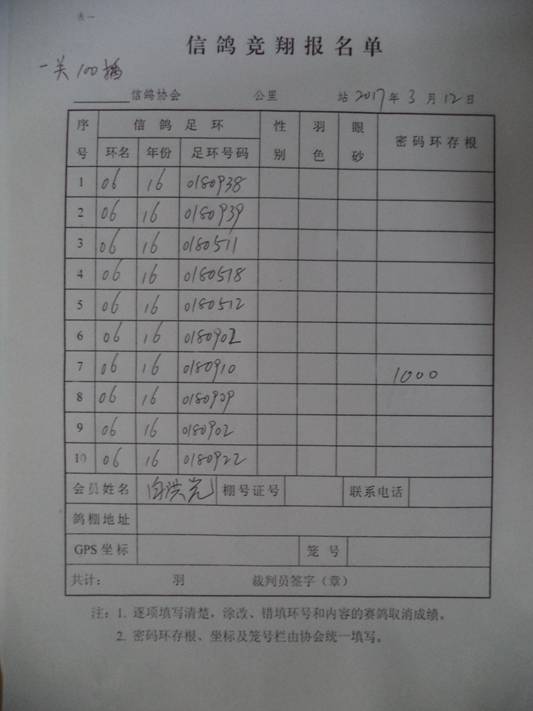 表一
信鸽竞翔报名单
一关100插
信鸽协会 公里 站 2017年3月12日
序号 信鸽足环 性别 羽色 眼砂 密码环存根
环名 年份 足环号码
1 06 16 0180938
2 06 16 0180939
3 06 16 0180511
4 06 16 0180518
5 06 16 0180512
6 06 16 0180902
7 06 16 0180910 1000
8 06 16 0180929
9 06 16 0180902
10 06 16 0180922
会员姓名 白洪光 棚号证号 联系电话
鸽棚地址
GPS坐标 笼号
共计: 羽 裁判员签字(章)
注:1. 逐项填写清楚,涂改、错填环号和内容的赛鸽取消成绩。
2. 密码环存根、坐标及笼号栏由协会统一填写。